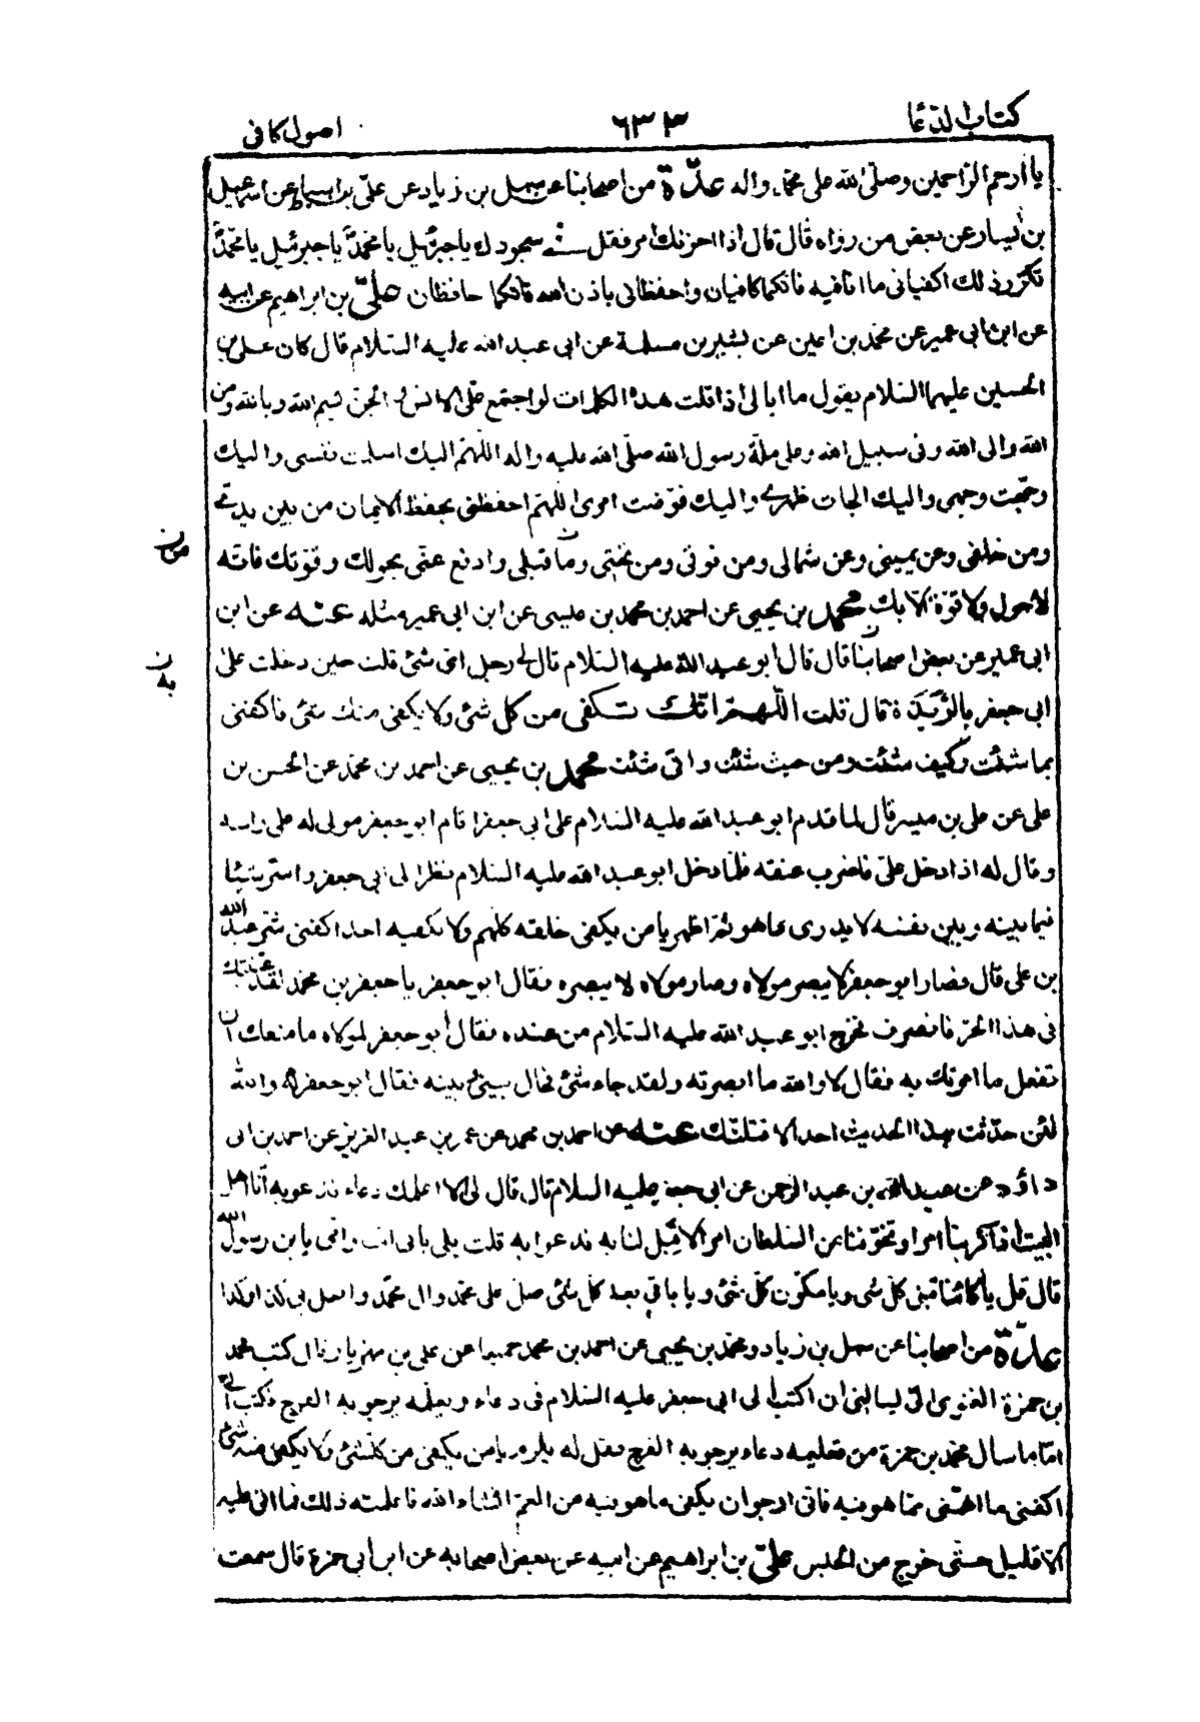 كتاب الدعا
٦٣٣
اصول كافى
يا ارحم الراحمين وصلى الله على محمد واله عدّة من اصحابنا عن سهل بن زياد عن علىّ بن اسباط عن اسمعيل
بن يسار عن بعض من رواه قال قال اذا احزنك امر فقل فى سجودك يا جبرئيل يا محمّد يا جبرئيل يا محمّد
تكرّر ذلك اكفيانى ما انا فيه فانكما كافيان واحفظانى باذن الله فانكما حافظان علىّ بن ابراهيم عن ابيه
عن ابن ابى عمير عن محمد بن اعين عن بشير بن مسلمة عن ابى عبد الله عليه السّلام قال كان على بن
الحسين عليهما السّلام يقول ما ابالى اذا قلت هذه الكلمات لو اجتمع علىّ الانس و الجنّ بسم الله وبالله ومن
الله والى الله وفى سبيل الله وعلى ملّة رسول الله صلّى الله عليه واله اللّهمّ اليك اسلمت نفسى واليك
وجّهت وجهى واليك الجات ظهرى واليك فوّضت امرى اللّهمّ احفظنى بحفظ الايمان من بين يدىّ
ومن خلفى وعن يمينى وعن شمالى ومن فوقى ومن تحتى وما قبلى وادفع عنّى بحولك وقوّتك فانّه
من ن
لا حول ولا قوّة الّا بك محمد بن يحيى عن احمد بن محمد بن عيسى عن ابن ابى عمير مثله عنه عن ابن
ابى عمير عن بعض اصحابنا قال قال ابو عبد الله عليه السّلام قال لى رجل اىّ شئ قلت حين دخلت على
به ن
ابى جعفر بالرَّبَذَة قال قلت اللّهمّ انّك تكفى من كل شئ ولا يكفى منك شئ فاكفنى
بما شئت وكيف شئت ومن حيث شئت وانّى شئت محمد بن يحيى عن احمد بن محمّد عن الحسن بن
على عن على بن ميسر قال لما قدم ابو عبد الله عليه السّلام على ابى جعفر اقام ابو جعفر مولى له على راسه
وقال له اذا دخل علىّ فاضرب عنقه فلمّا دخل ابو عبد الله عليه السّلام نظر الى ابى جعفر واسرّ شيئا
فيما بينه وبين نفسه لا يدرى ما هو ثمّ اظهر يا من يكفى خلقه كلّهم ولا يكفيه احد اكفنى شرّ عبد الله
بن على قال فصار ابو جعفر لا يبصر مولاه وصار مولاه لا يبصره فقال ابو جعفر يا جعفر بن محمد لقد عنّيتك
فى هذا الحرّ فانصرف فخرج ابو عبد الله عليه السّلام من عنده فقال ابو جعفر لمولاه ما منعك ان
تفعل ما امرتك به فقال لا والله ما ابصرته ولقد جاء شئ فحال بينى و بينه فقال ابو جعفر له والله
لئن حدّثت بهذا الحديث احدا لاقتلنّك عنه عن احمد بن محمد عن عمر بن عبد العزيز عن احمد بن ابى
داود عن عبد الله بن عبد الرحمن عن ابى جعفر عليه السلام قال قال لى الا اعلمك دعاء ندعو به انّا اهل
البيت اذا كربنا امر او تخوّفنا من السّلطان امرا لا قبل لنا به ندعوا به قلت بلى بابى انت وامّى يا بن رسول الله
قال قل يا كائنا قبل كل شئ ويا مكوّن كلّ شئ ويا باقى بعد كل شئ صل على محمّد وال محمّد وافعل بى كذا وكذا
عدّة من اصحابنا عن سهل بن زياد ومحمّد بن يحيى عن احمد بن محمد جميعا عن على بن مهزيار قال كتب محمد
بن حمزة الغنوى الىّ يسالنى ان اكتب الى ابى جعفر عليه السّلام فى دعاء ويعلّمه يرجو به الفرج فكتب الىّ
امّا ما سال محمّد بن حمزة من تعليمه دعاء يرجو به الفرج فقل له يلزم يا من يكفى من كل شئ ولا يكفى منه شئ
اكفنى ما اهمّنى ممّا هو فيه فانّى ارجو ان يكفى ما هو فيه من الغمّ انشاء الله فاعلمته ذلك فما اتى عليه
الّا قليل حتّى خرج من الحبس علىّ بن ابراهيم عن ابيه عن بعض اصحابه عن ابن ابى حمزة قال سمعت